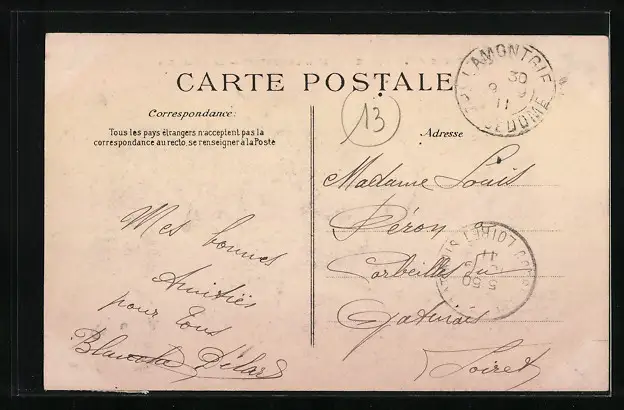 CARTE POSTALE
LAMONTGIE
30
9
11
DE DOME
13
Correspondance:
Tous les pays étrangers n'acceptent pas la
correspondance au recto, se renseigner à la Poste
Adresse
Madame Louis
Péron
Corbeilles du
Gatinais
Loiret
Mes bonnes
Amitiés
pour tous
Blanche
LOIRET
5 50
11